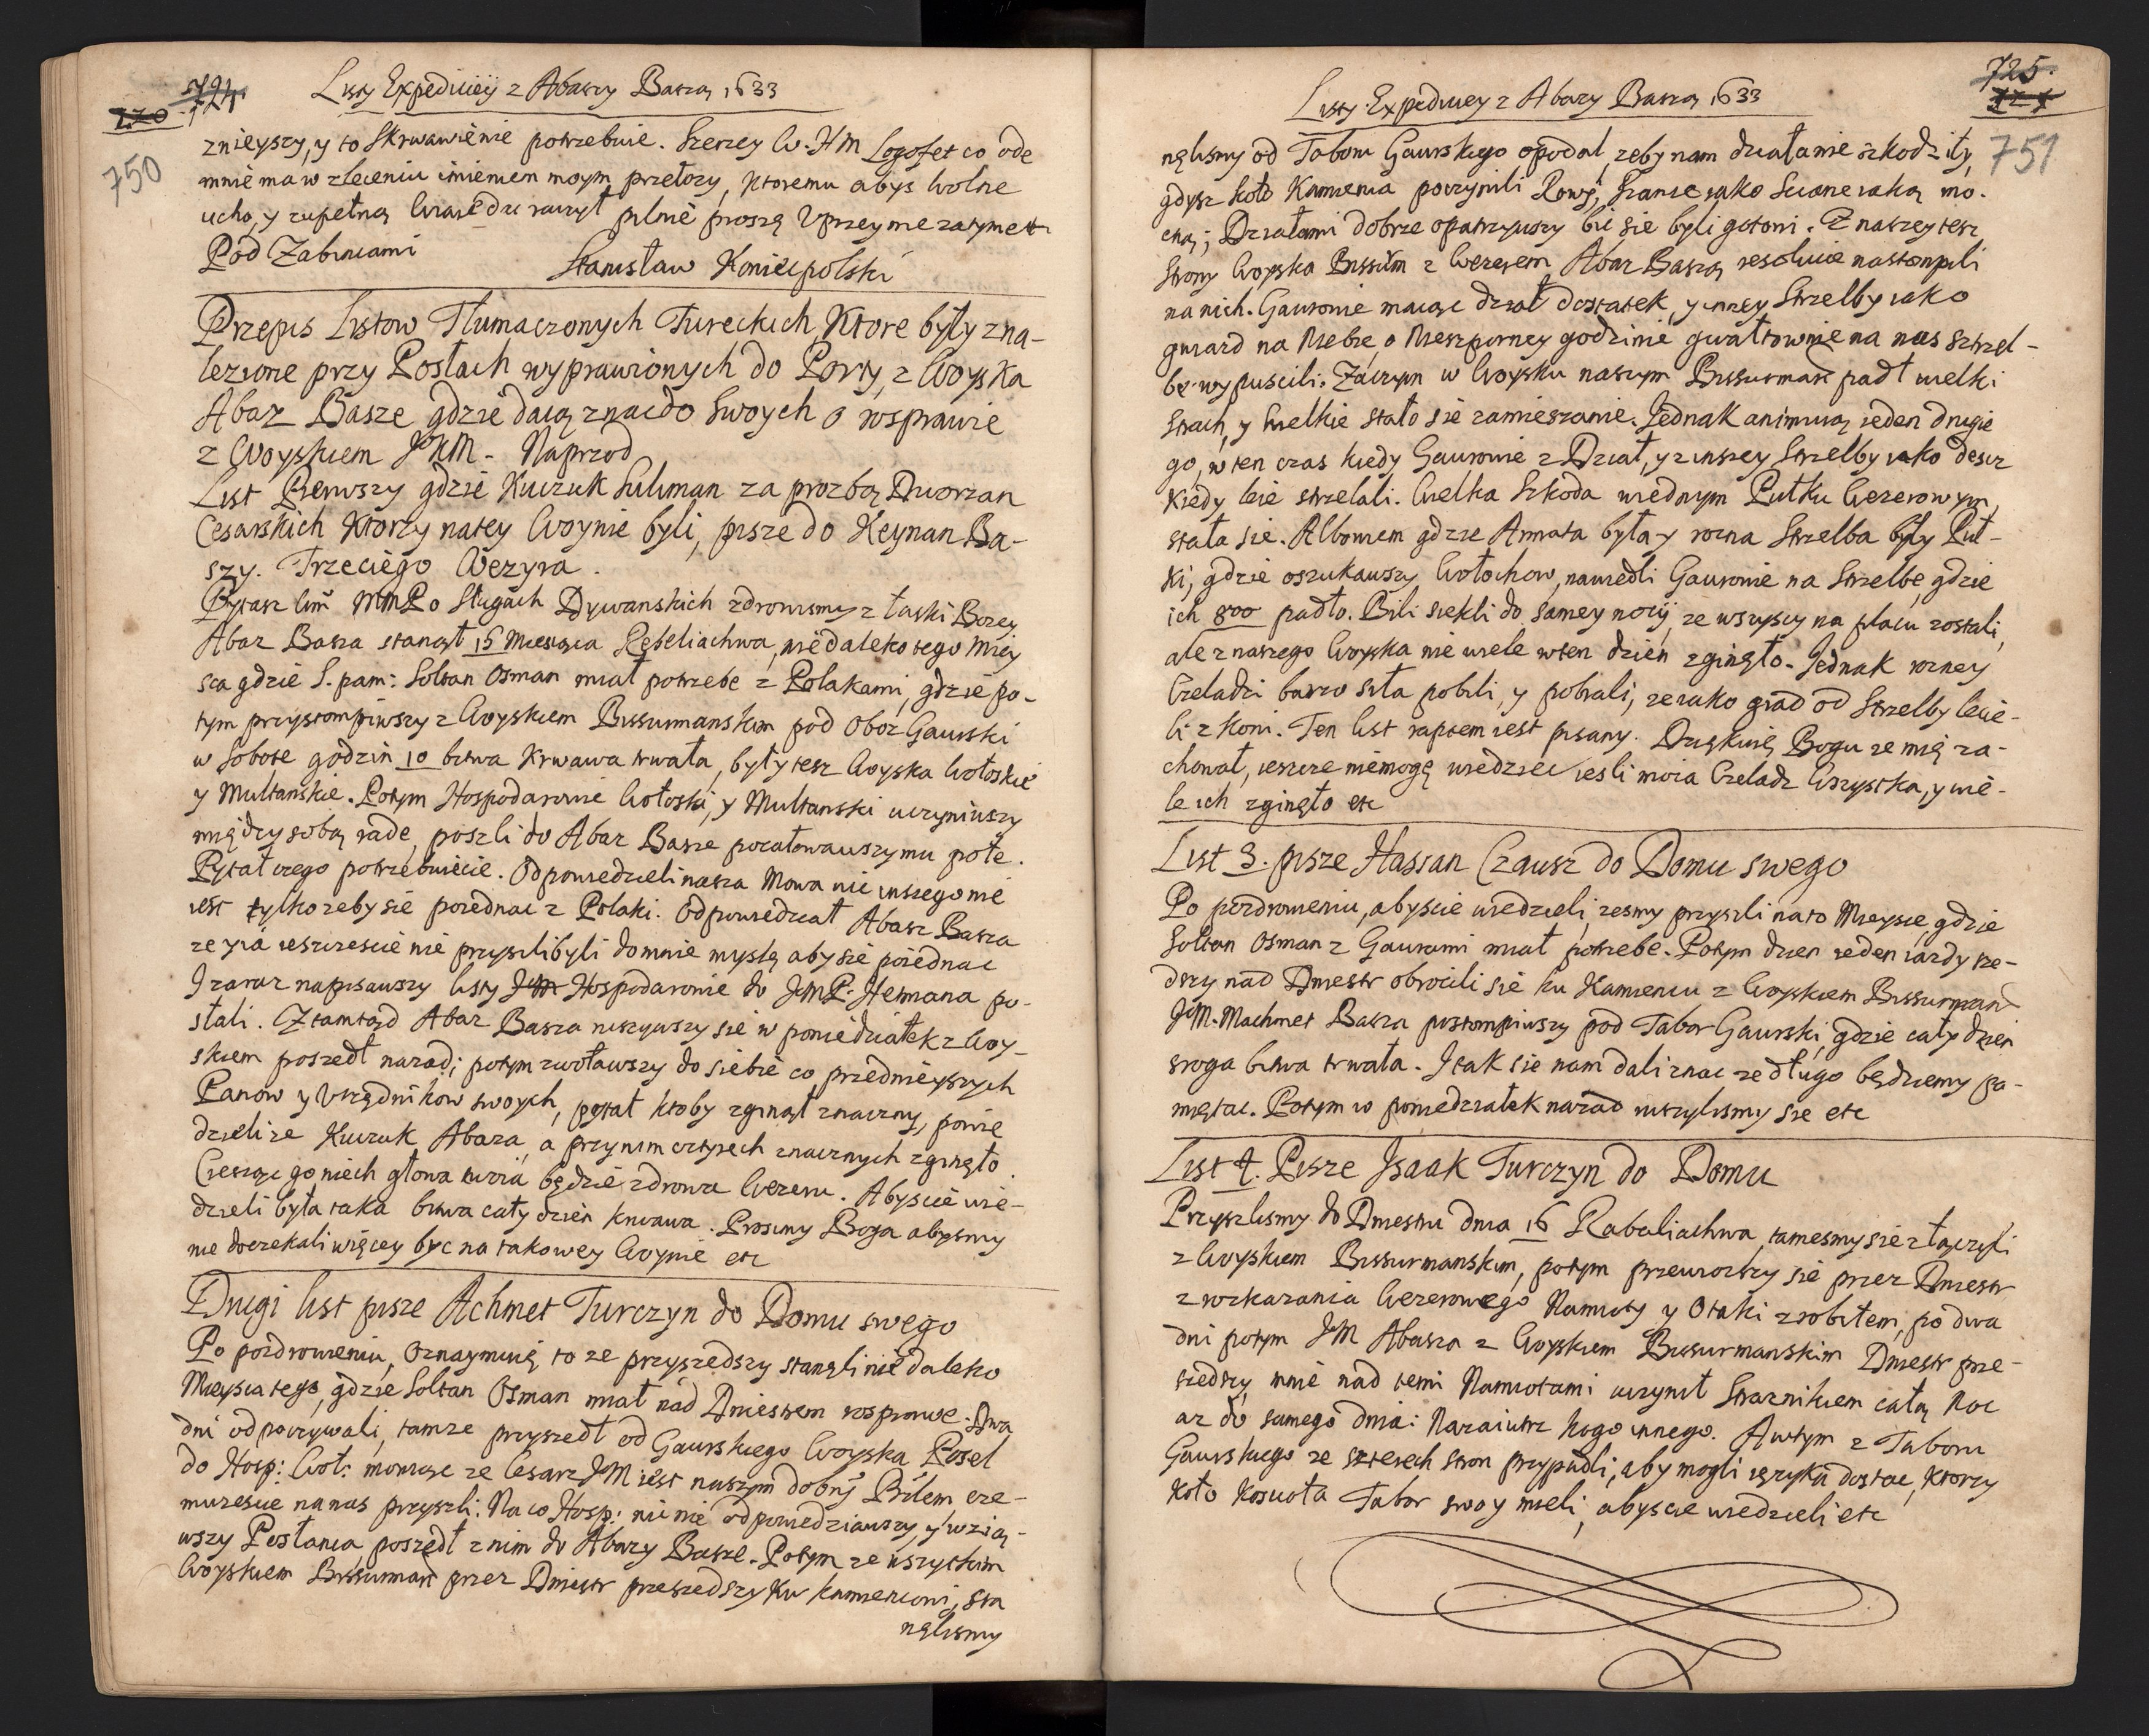 724.
720
750
Listy Expediciey z Abazy Baszą 1633
znieyszy, y to Skrwawienie potrzebuie. Szerzey W. HM Logofet co ode
mnie ma w zleceniu imieniem moym przełozy, ktoremu abys Wolne
ucho, y zupełną Wiarę dac raczył pilnie proszę Vprzeyme zatym etc
Pod Zabincami
Stanisław Koniecpolski
Przepis Listow Tłumaczonych Tureckich, Ktore były zna-
lezione przy Posłach wyprawionych do Porty, z Woyska
Abaz Basze gdzie daią znac do Swoych o rosprawie
z Woyskiem JKM. Naprzod
List Pierwszy gdzie Kuczuk Suliman za prozbą Dworzan
Cesarskich Ktorzy na tey Woynie byli, pisze do Keynan Ba-
szy. Trzeciego Wezyra.
Pytasz Wm MMP o Sługach Dywanskich zdrowismy z łaski Bozey
Abaz Basza stanął 15 Miesiąca Rebeliachwa, niedaleko tego Miey
sca gdzie S. pam: Soltan Osman miał potrzebe z Polakami, gdzie po-
tym przystompiwszy z Woyskiem Bissurmanskim pod Oboz Gaurski
w Sobote godzin 10 bitwa Krwawa trwała, były tesz Woyska Wołoskie
y Multanskie. Potym Hospodarowie Wołoski, y Multanski uczyniwszy
między sobą rade, poszli do Abaz Basze pocałowawszy mu połe.
Pytał czego potrzebuiecie. Odpowiedzieli nasza Mowa nic inszego nie
iest tylko zeby sie poiednac z Polaki. Odpowiedział Abasz Basza
ze y ia ieszczescie nie przyszli byli do mnie myslą aby sie poiednac
I zaraz napisawszy listy Hospodarowie do JMP: Hetmana po-
słali. Ztamtąd Abaz Basza ruszywszy sie w poniedziałek z Woy-
skiem poszedł nazad; potym zwoławszy do siebie co przednieyszych
Panow y Vrzędnikow swoych, pytał ktoby zginął znaczny, powie
dzieli ze Kuczuk Abaza, a przy nim czterech znacznych zginęło.
Cieszyc go niech głowa twoia będzie zdrowa Wezeru. Abyscie wie-
dzieli była taka bitwa cały dzien krwawa. Prosimy Boga abysmy
nie doczekali więcey byc na takowey Woynie etc
Drugi list pisze Achmet Turczyn do Domu swego
Po pozdrowieniu, Oznaymuię to ze przyszedszy stanęli nie daleko
Mieysca tego, gdzie Soltan Osman miał nad Dniestrem rosprawe. Dwa
dni odpoczywali, tamze przyszedł od Gaurskiego Woyska Poseł
do Hosp: Woł: mowiąc ze Cesarz JM iest naszym dobry Bilem cze-
muzescie na nas przyszli: Na co Hosp: nic nie odpowiedziawszy, y wzią-
wszy Posłanca poszedł z nim do Abazy Basze. Potym ze wszytkim
Woyskiem Bissurmań przez Dniestr przeszedszy ku kamiencowi, sta
nęlismy
725.
721
751
Listy Expediciey z Abazy Baszą 1633
nęlismy od Taboru Gaurskiego opodal, zeby nam działa nie szkodziły,
gdysz koło Kamienca poczynili Rowy, Szance iako Sciane iaką mo-
cną; Działami dobrze opatrzywszy bic sie byli gotowi. Z naszey tesz
Strony Woyska Bissurm z Wezerem Abaz Baszą resolucie nastompili
na nich. Gaurowie maiąc dział dostatek, y inszey Strzelby iako
gwiazd na Niebie, o Nieszporney godzinie gwałtownie na nas Strzel-
be wypuscili. Zaczym w Woysku naszym Bissurmań padł wielki
Strach, y Wielkie stało sie zamieszanie. Jednak animuią ieden drugie
go, w ten czas kiedy Gaurowie z Dział, y z inszey Strzelby iako desz
kiedy leie strzelali. Wielka Szkoda w iednym Pułku Wezerowym
stała sie. Albowiem gdzie Armata była y rozna Strzelba były Puł-
ki, gdzie oszukawszy Wołochow, nawiedli Gaurowie na Strzelbe, gdzie
ich 800 padło. Bili siekli do samey nocy, ze wszyscy na placu zostali,
ale z naszego Woyska nie wiele w ten dzien zginęło. Jednak rozney
Czeladzi barzo siła pobili, y pobrali, ze iako grad od Strzelby lecie-
li z koni. Ten list raptem iest pisany. Dziękuię Bogu ze mię za-
chował, ieszcze niemogę wiedziec iesli moia Czeladz Wszystka, y wie-
le ich zginęło etc
List 3. pisze Hassan Czausz do Domu swego
Po pozdrowieniu, abyscie wiedzieli, zesmy przyszli na to Mieysce, gdzie
Soltan Osman z Gaurami miał potrzebe. Potym dzien ieden iazdy sze-
dszy nad Dniestr obrocili sie ku Kamiencu z Woyskiem Bissurmań
JM. Machmet Basza postompiwszy pod Tabor Gaurski, gdzie cały dzien
sroga bitwa trwała. I tak sie nam dali znac ze długo będziemy pa-
mietac. Potym w poniedziałek nazad ruszylismy sie etc
List 4. Pisze Isaak Turczyn do Domu
Przyszlismy do Dniestru dnia 16 Rabaliachwa, tamesmy sie złączyli
z Woyskiem Bissurmanskim, potym przewiozszy sie przez Dniestr
z roskazania Wezerowego Namioty y Otaki zrobiłem, po dwa
dni potym JM Abasza z Woyskiem Bissurmanskim Dniestr prze-
szedszy mnie nad temi Namiotami uczynił Straznikiem całą Noc
az do samego dnia: Nazaiutrz kogo innego. A wtym z Taboru
Gaurskiego ze czterech stron przypadli, aby mogli ięzyka dostac, ktorzy
koło Koscioła Tabor swoy mieli, abyscie wiedzieli etc